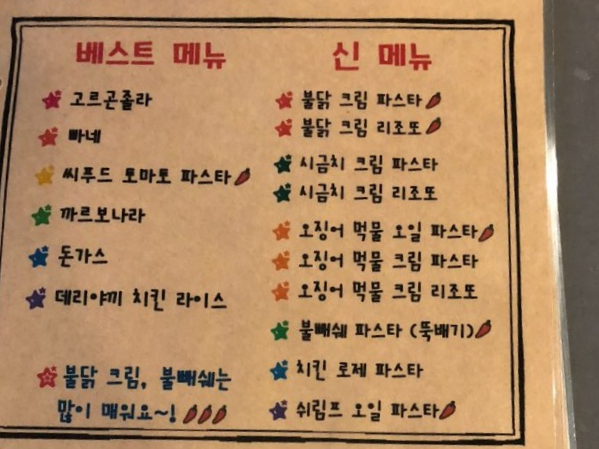 베스트 메뉴
고르곤졸라
빠네
씨푸드 토마토 파스타
까르보나라
돈가스
데리야끼 치킨 라이스
불닭 크림, 불빼쉐는
많이 매워요~!
신 메뉴
불닭 크림 파스타
불닭 크림 리조또
시금치 크림 파스타
시금치 크림 리조또
오징어 먹물 오일 파스타
오징어 먹물 크림 파스타
오징어 먹물 크림 리조또
불빼쉐 파스타 (뚝배기)
치킨 로제 파스타
쉬림프 오일 파스타